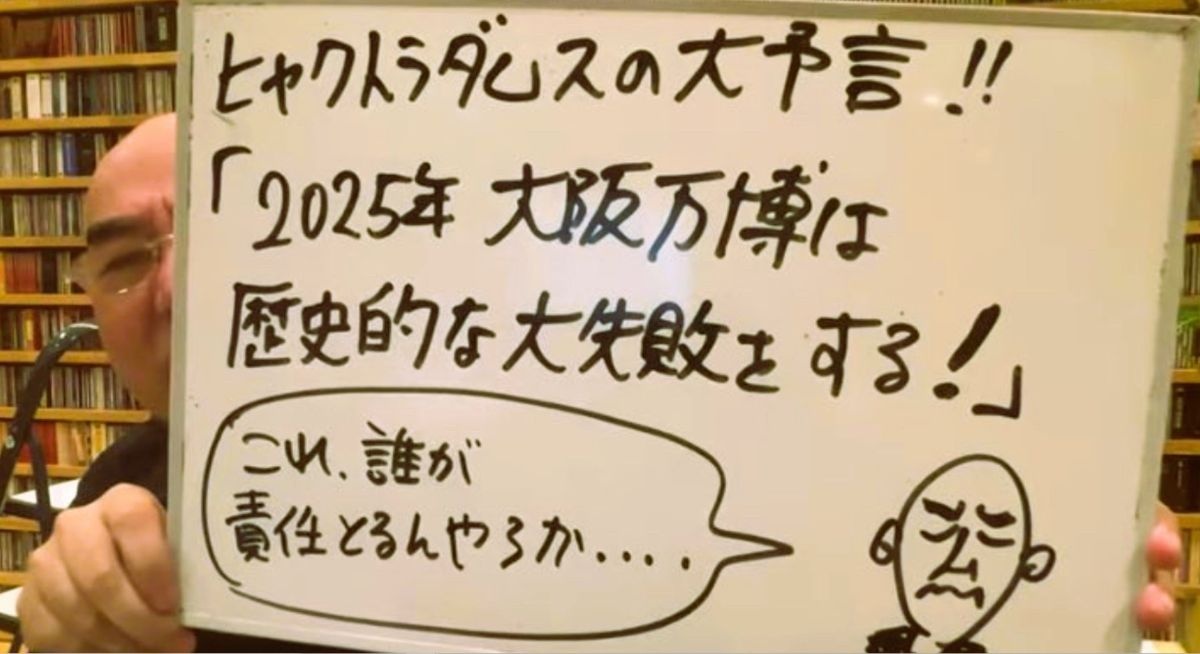 ヒャクトラダムスの大予言!!
「2025年 大阪万博は
歴史的な大失敗をする!」
これ、誰が
責任とるんやろか....